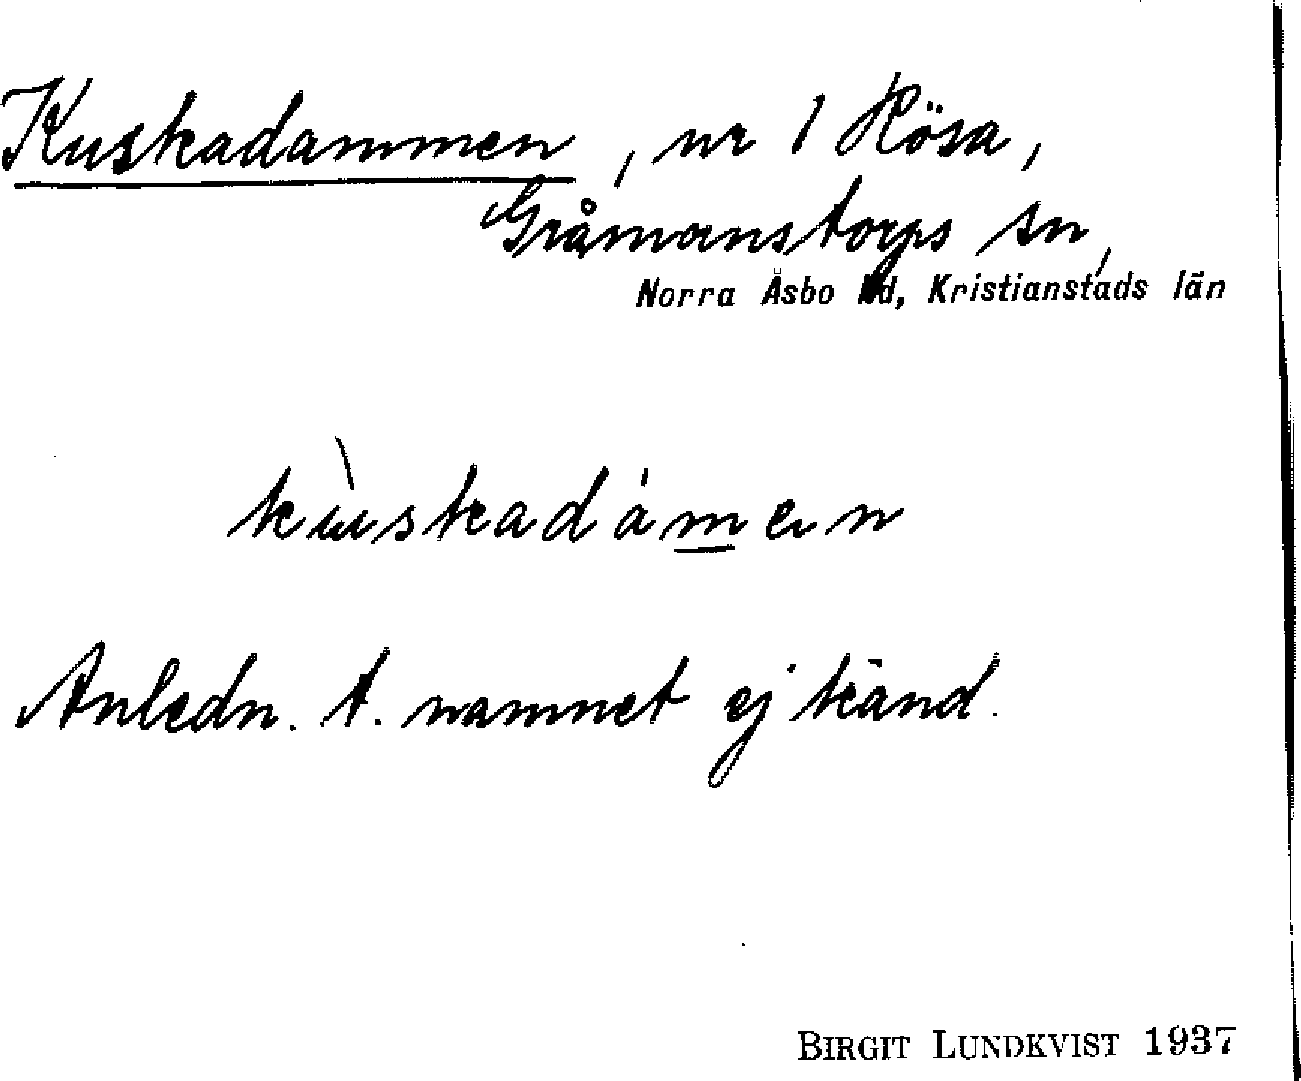 Kuskadammen, nr 1 Hösa,
Gråmanstorps sn,
Norra Åsbo hd, Kristianstads län
kùskadámen
Anledn. t. namnet ej känd.
BIRGIT LUNDKVIST 1937